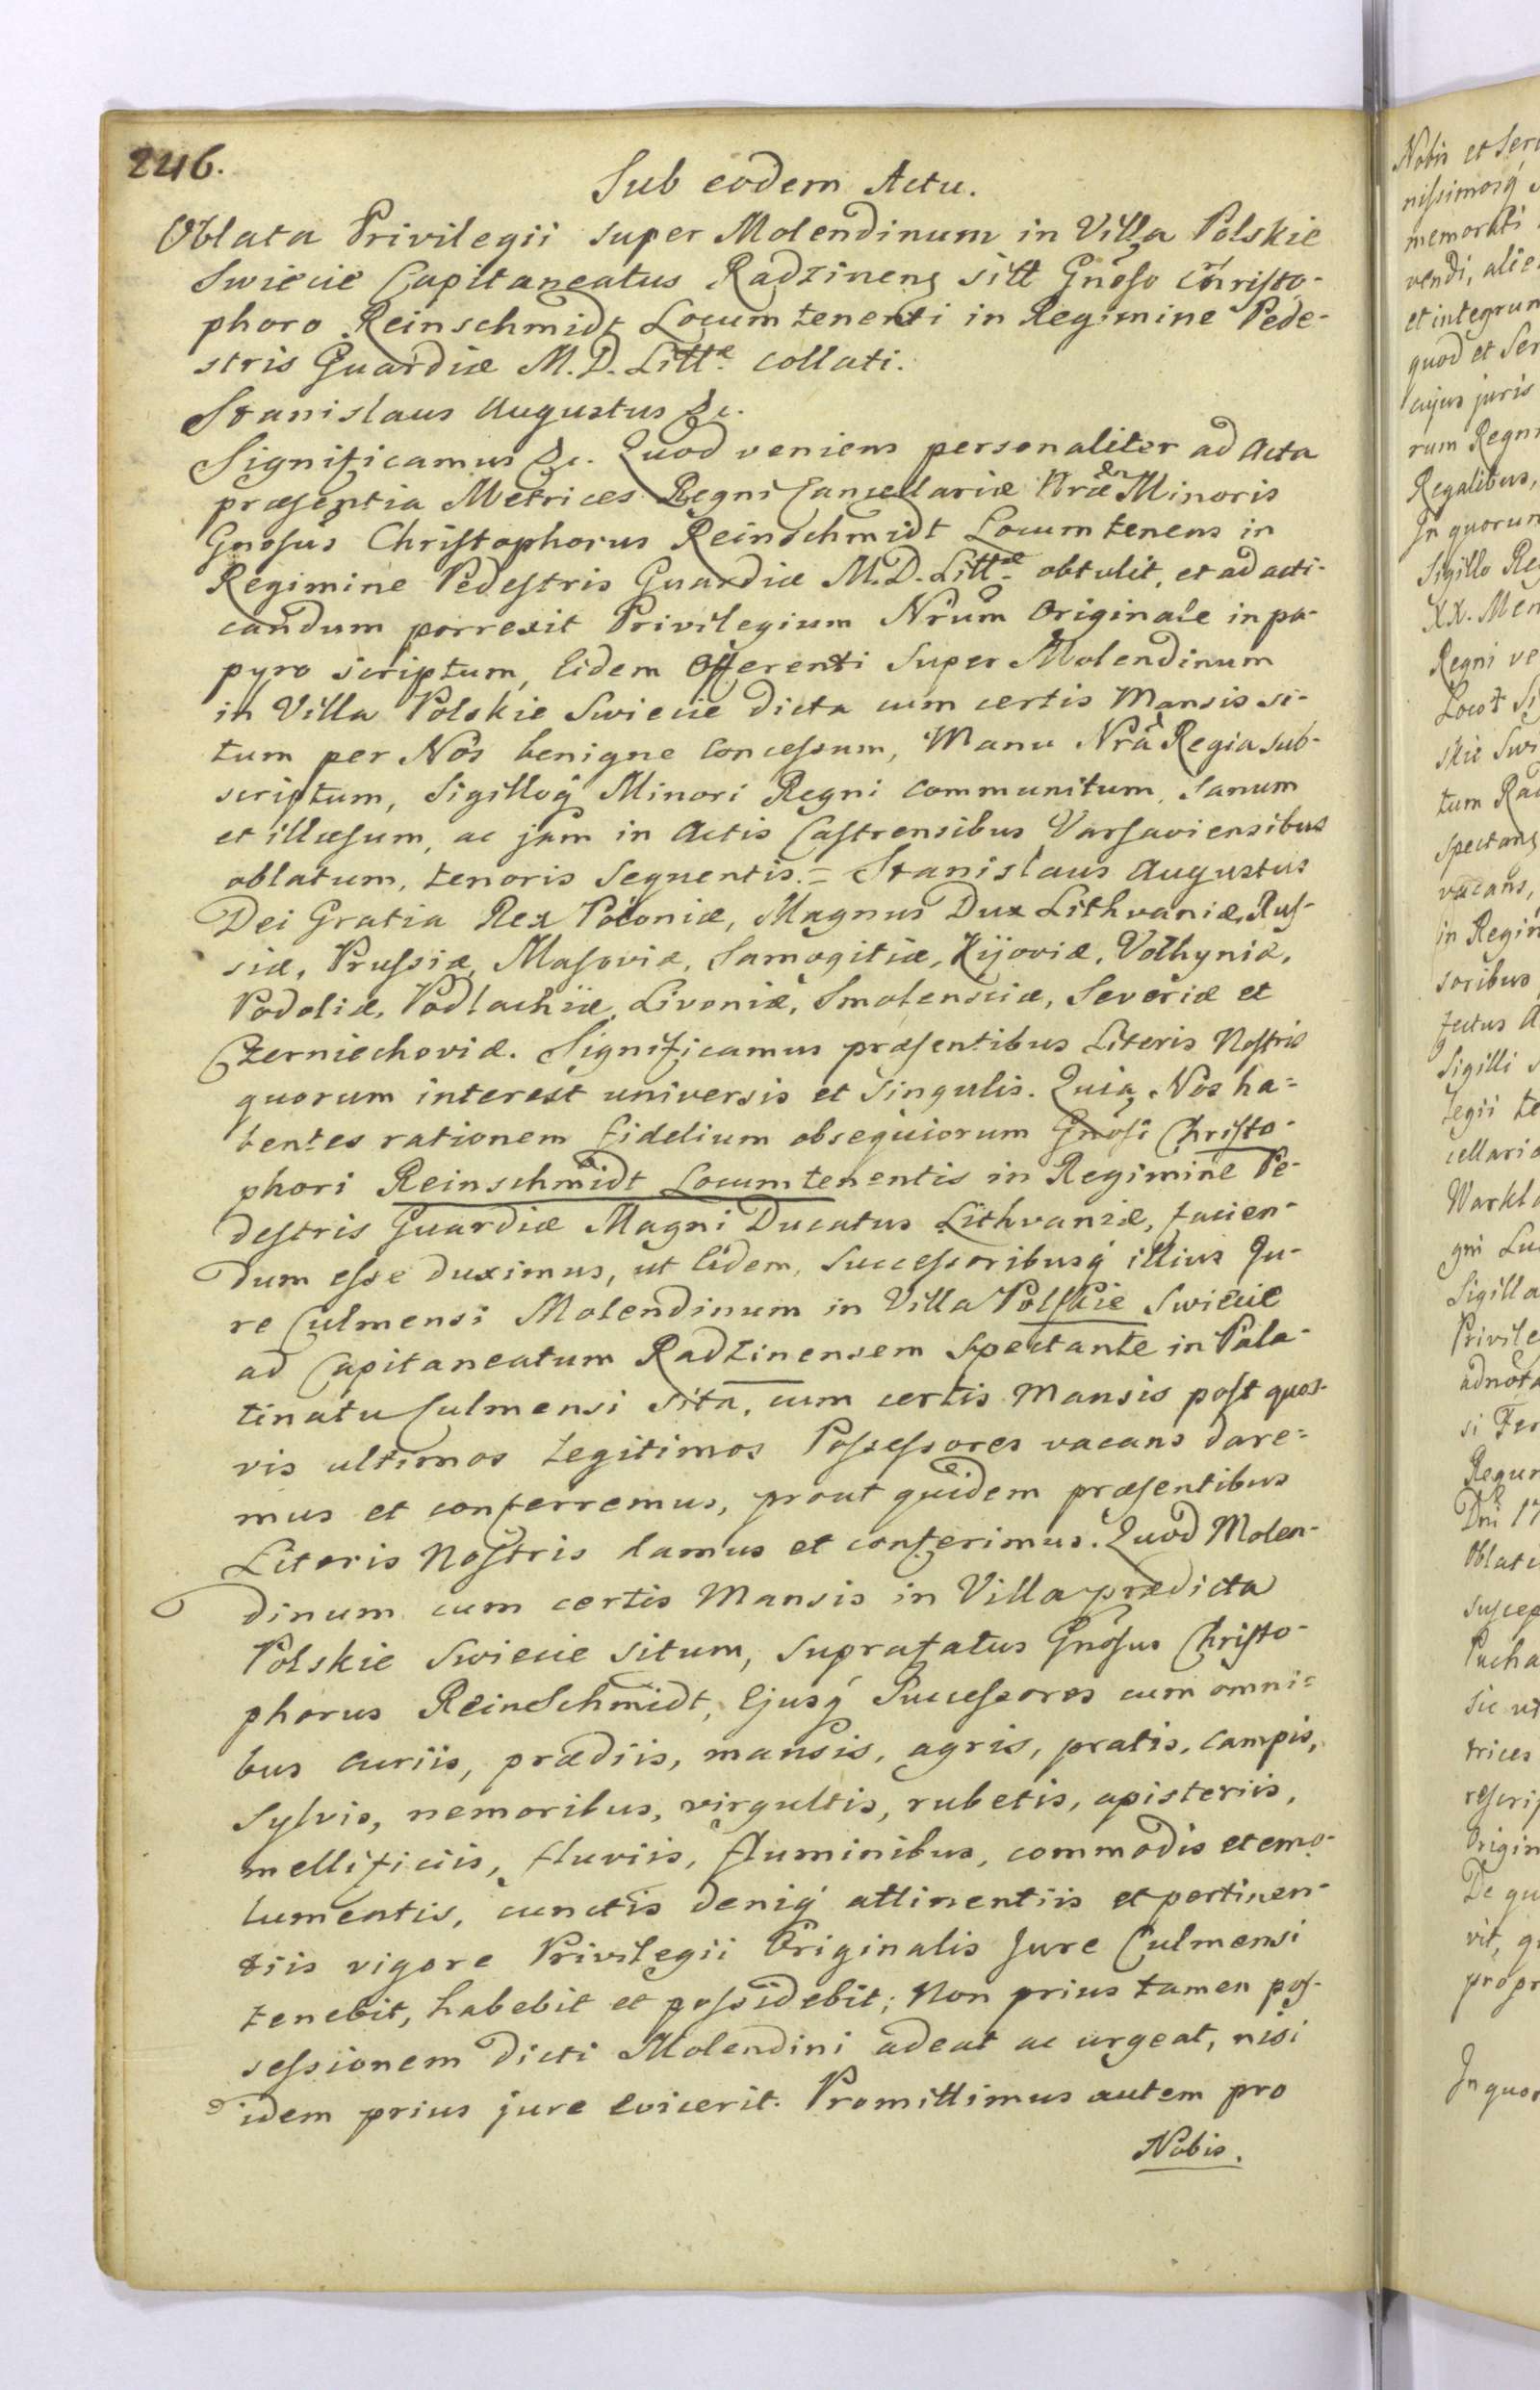 246.
Sub eodem Actu.
Oblata Privilegii super Molendinum in Villa Polskie
Swiecie Capitaneatus Radzinens sitt Gnoso Christo-
phoro Reinschmidt Locumtenenti in Regimine Pede-
stris Guardiæ M. D. Litt͞æ collati.
Stanislaus Augustus &c.
Significamus &c. Quod veniens personaliter ad Acta
præsentia Metrices Regni Cancellariæ Nræ Minoris
Gnosus Christophorus Reinschmidt Locumtenens in
Regimine Pedestris Guardiæ M. D. Litt͞æ obtulit, et ad acti-
candum porrexit Privilegium Nrum Originale in pa-
pyro scriptum, Eidem Offerenti super Molendinum
in Villa Polskie Swiecie dicta cum certis Mansis si-
tum per Nos benigne Concessum, Manu Nrâ Regia sub-
scriptum, Sigilloq́ Minori Regni communitum, Sanum
et illæsum, ac jam in Actis Castrensibus Varsaviensibus
oblatum, tenoris sequentis. = Stanislaus Augustus
Dei Gratia Rex Poloniæ, Magnus Dux Lithvaniæ, Rus-
siæ, Prussiæ, Masoviæ, Samogitiæ, Kijoviæ, Volhyniæ,
Podoliæ, Podlachiæ, Livoniæ, Smolensciæ, Severiæ et
Czerniechoviæ. Significamus præsentibus Literis Nostris
quorum interest universis et singulis. Quia Nos ha=
bentes rationem fidelium obsequiorum Gnosi Christo-
phori Reinschmidt Locumtenentis in Regimine Pe-
destris Guardiæ Magni Ducatus Lithvaniæ, facien-
dum esse duximus, ut Eidem, Successoribusq́ illius Ju-
re Culmensi Molendinum in Villa Polskie Swiecie
ad Capitaneatum Radzinensem Spectante in Pala-
tinatu Culmensi sita, cum certis Mansis post quos-
vis ultimos Legitimos Possessores vacans dare=
mus et conferremus, prout quidem præsentibus
Literis Nostris damus et conferimus. Quod Molen-
dinum cum certis Mansis in Villa prædicta
Polskie Swiecie situm, suprafatus Gnosus Christo-
phorus Reinschmidt, Ejusq́ Successores cum omni=
bus curiis, prædiis, mansis, agris, pratis, campis,
Sylvis, nemoribus, virgultis, rubetis, apisteriis,
mellificiis, fluviis, fluminibus, commodis et emo-
lumentis, cunctis deniq́ attinentiis et pertinen-
tiis vigore Privilegii Originalis Jure Culmensi
tenebit, habebit et possidebit; Non prius tamen pos-
sessionem dicti Molendini adeat ac urgeat, nisi
idem prius jure evicerit. Promittimus autem pro
Nobis.
Nobis et Ser
nissimosq́
memorati
vendi, alie
et integrum
quod et Ser
cujus juris
rum Regni
Regalibus,
In quorum
Sigillo Re
XX. Men
Regni ve
skie Swi
tum Rad
spectans
vacans,
in Regim
soribus
Sigilli
legii te
cellaria
gni Lu
Sigilla
Privile
adnota
si
Dni 17
Oblat
suscep
sic ut
trices
rescrip
Origin
De qu
vit, q
propr
In quor